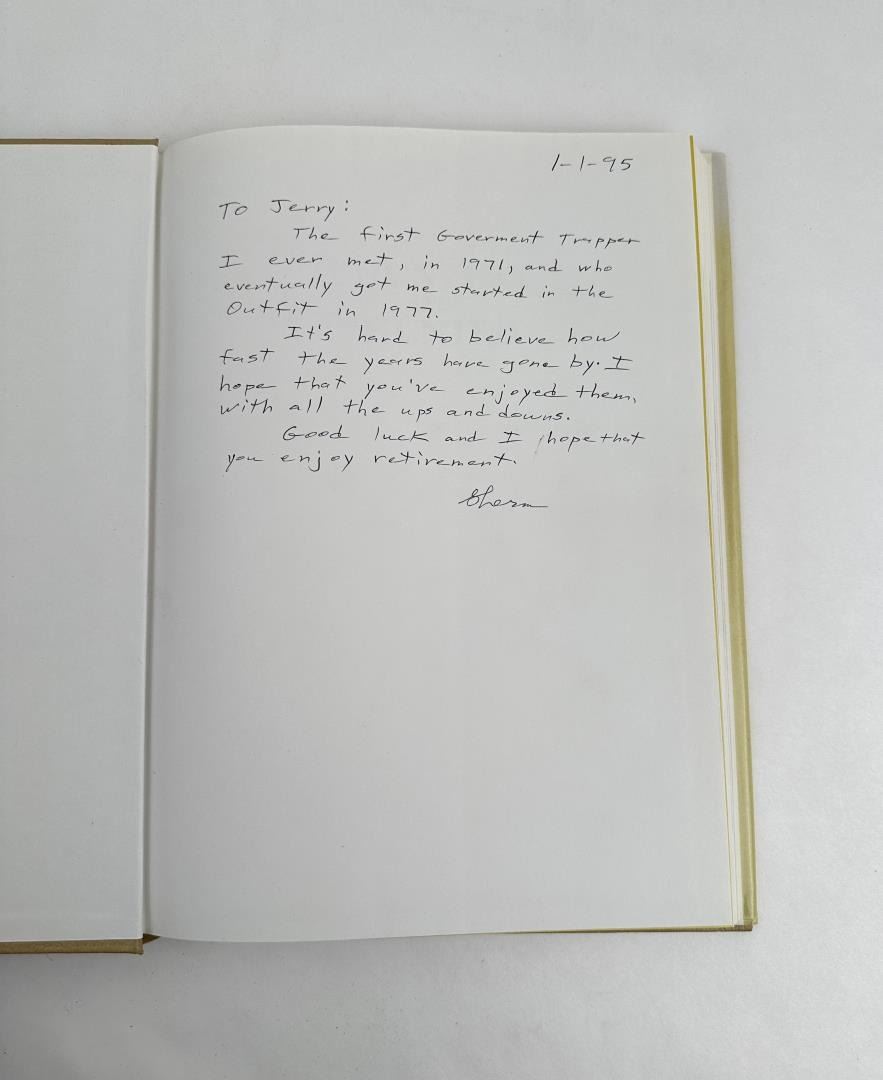 1-1-95
To Jerry:
The first Goverment Trapper
I ever met, in 1971, and who
eventually got me started in the
Outfit in 1977.
It's hard to believe how
fast the years have gone by. I
hope that you've enjoyed them,
with all the ups and downs.
Good luck and I hope that
you enjoy retirement.
Sherm